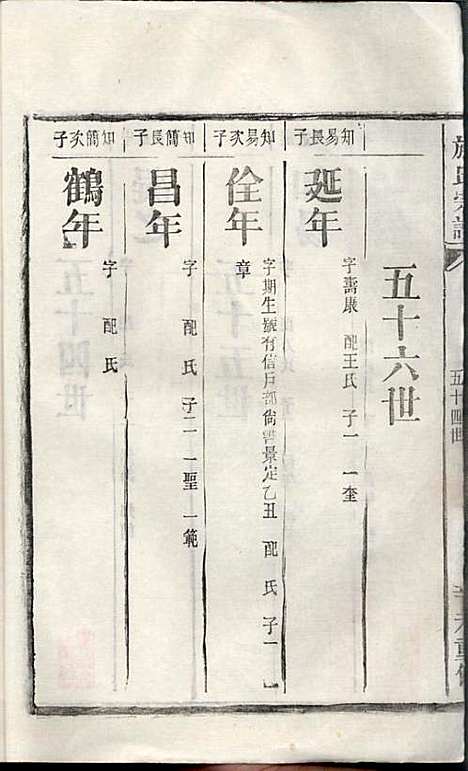 五十六世
知易長子
延年
字壽康 配王氏 子一 一奎
知易次子
佺年
字期生號有信戶部尙書景定乙丑 配 氏 子一 一
章
知簡長子
昌年
字 配 氏 子二 一聖 一範
知簡次子
鶴年
字 配 氏
五十四世